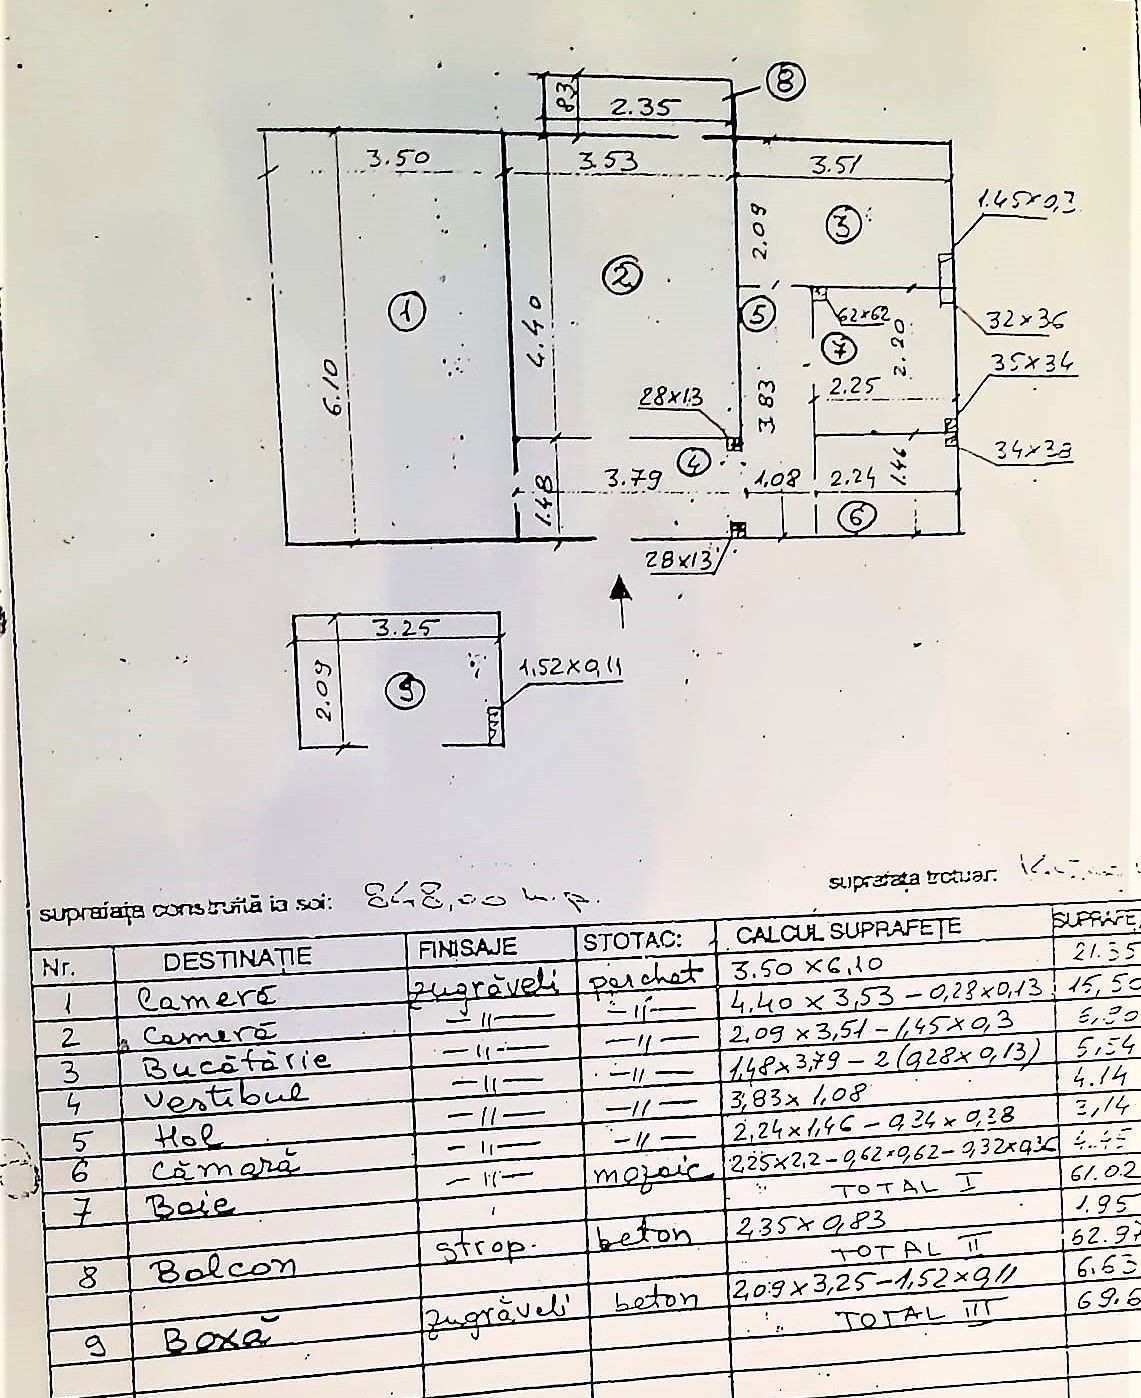 8
83
2.35
3.50
3.53
3.51
1.45×0,3
2.09
3
2
1
5
62×62
32×36
7
2.20
35×34
4.40
6.10
28×13
3.83
2.25
4
3.79
1.08
2.24
1.46
34×38
1.48
6
28×13
3.25
2.09
9
1,52×0,11
suprafața construită la sol: 848,00 m.p.
suprafața trotuar:
Nr. DESTINAȚIE FINISAJE STOTAC: CALCUL SUPRAFEȚE SUPRAFE
1 Cameră zugrăveli parchet 3.50×6,10 21.35
2 Cameră —"— —"— 4.40×3,53−0,28×0,13 15,50
3 Bucătărie —"— —"— 2.09×3,51−1,45×0,3 6,90
4 Vestibul —"— —"— 1,48×3,79−2(0,28×0,13) 5,54
5 Hol —"— —"— 3,83×1,08 4.14
6 Cămară —"— —"— 2,24×1,46−0,34×0,38 3,14
7 Baie —"— mozaic 2,25×2,2−0,62×0,62−0,32×0,36 4.45
TOTAL I 61.02
8 Balcon strop. beton 2,35×0,83 1.95
TOTAL II 62.97
9 Boxă zugrăveli beton 2,09×3,25−1,52×0,11 6.63
TOTAL III 69.6